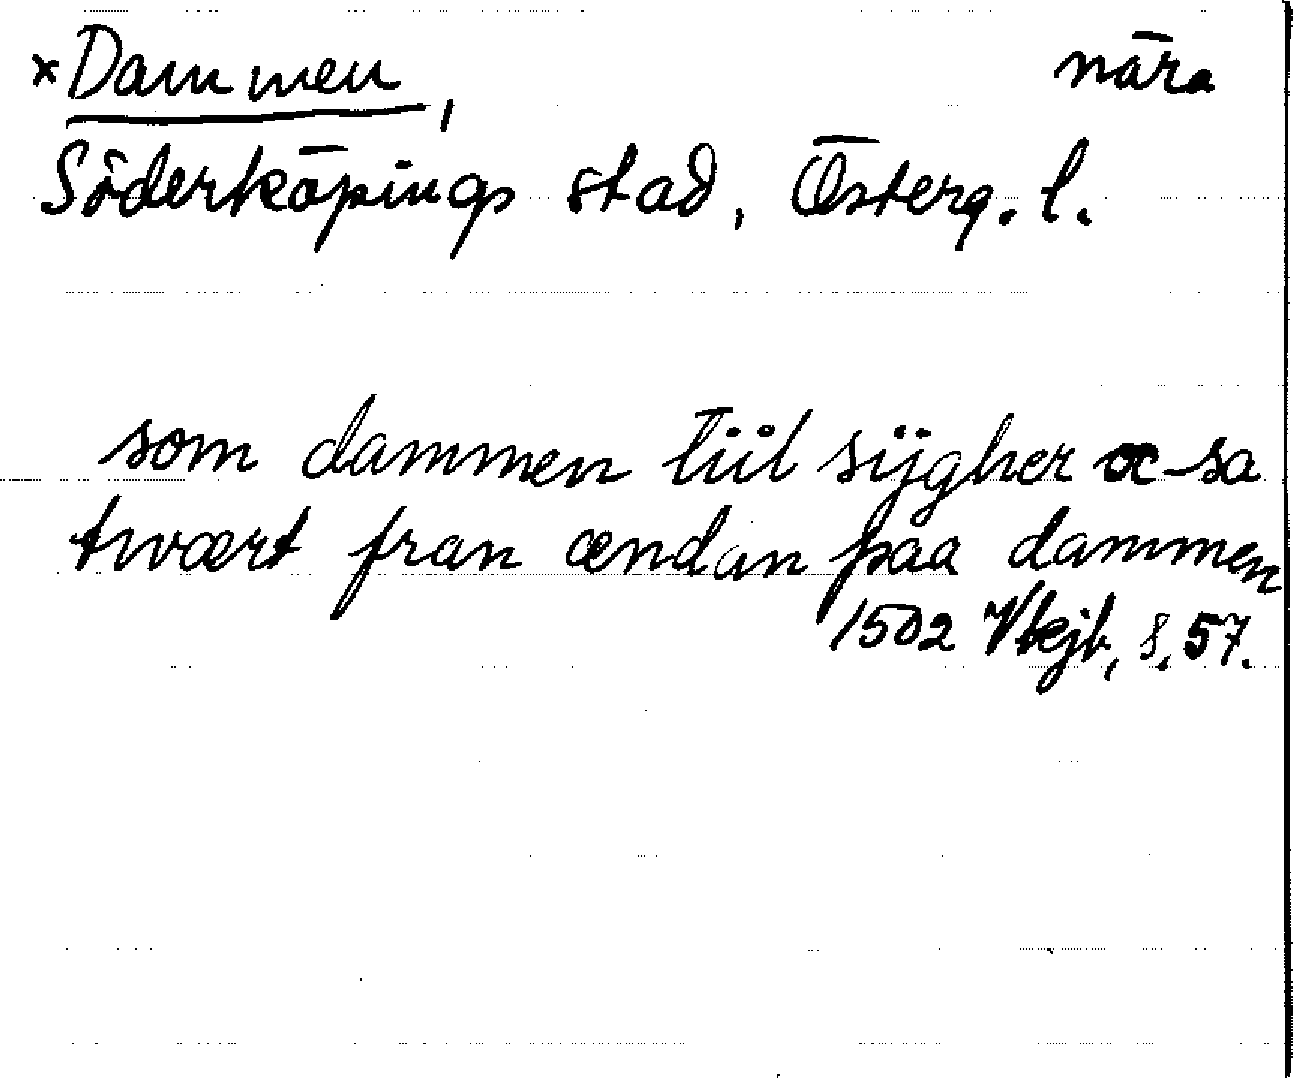 ×Dammen, nära
Söderköpings stad, Österg. l.
som dammen tiil sijgher œ sa
twært fran œndan paa dammen
1502 Vkjb, s. 57.